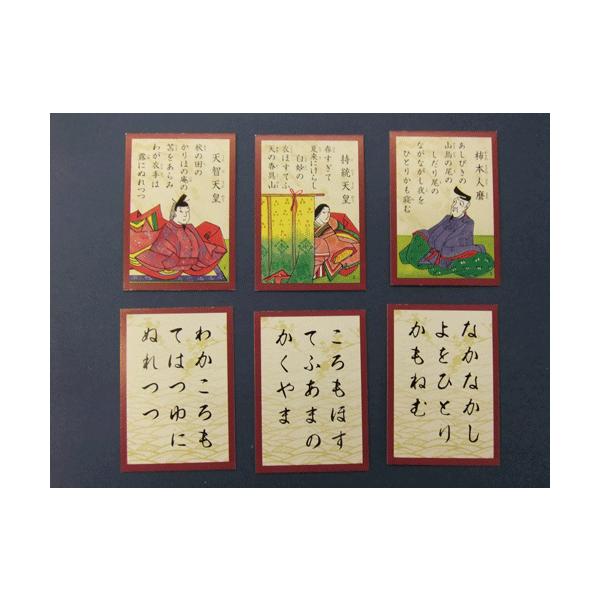 天智天皇
秋の田の
かりほの庵の
苫をあらみ
わが衣手は
露にぬれつつ
持統天皇
春すぎて
夏来にけらし
白妙の
衣ほすてふ
天の香具山
柿本人麿
あしびきの
山鳥の尾の
しだり尾の
ながながし夜を
ひとりかも寝む
わかころも
てはつゆに
ぬれつつ
ころもほす
てふあまの
かくやま
なかなかし
よをひとり
かもねむ